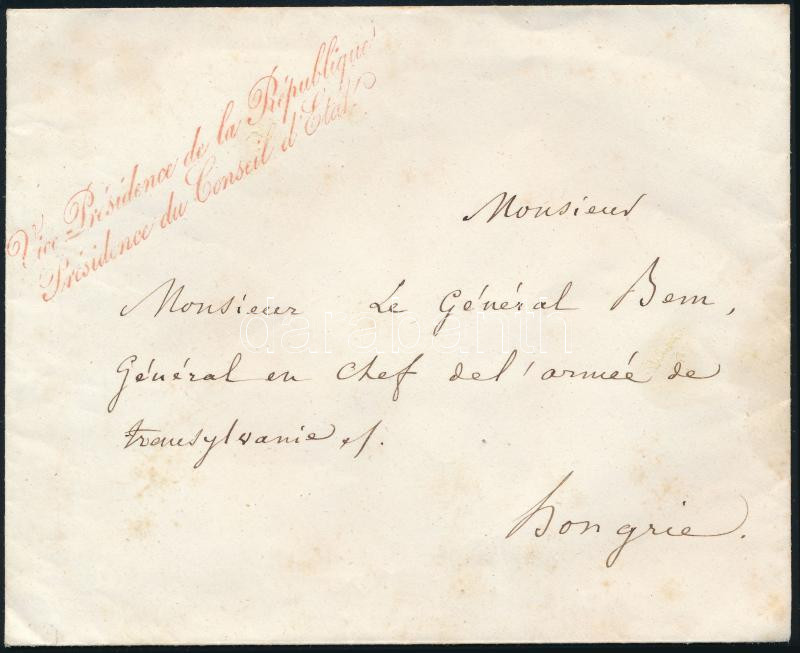 Vice-Présidence de la République
Présidence du Conseil d'Etat.
Monsieur
Monsieur Le Général Bem,
Général en chef de l'armée de
transylvanie
hongrie.
darabanth